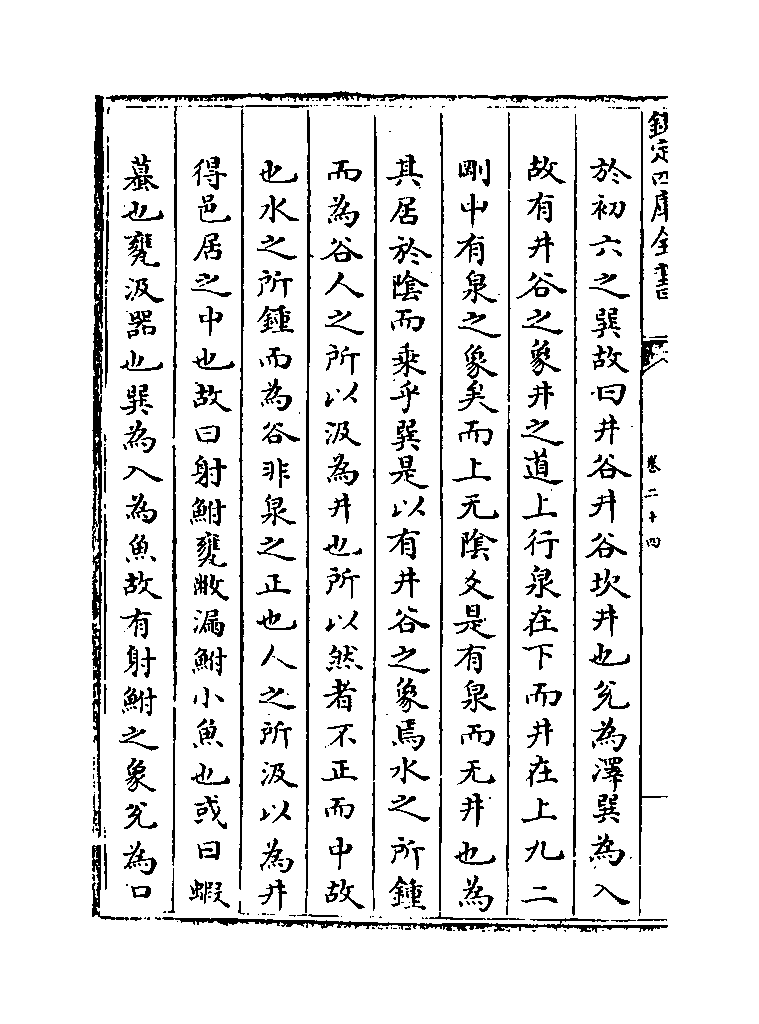 欽定四庫全書
卷二十四
於初六之巽故曰井谷井谷坎井也兊為澤巽為入
故有井谷之象井之道上行泉在下而井在上九二
剛中有泉之象矣而上无陰爻是有泉而无井也為
其居於陰而乘乎巽是以有井谷之象焉水之所鍾
而為谷人之所以汲為井也所以然者不正而中故
也水之所鍾而為谷非泉之正也人之所汲以為井
得邑居之中也故曰射鮒甕敝漏鮒小魚也或曰蝦
蟇也甕汲器也巽為入為魚故有射鮒之象兊為口